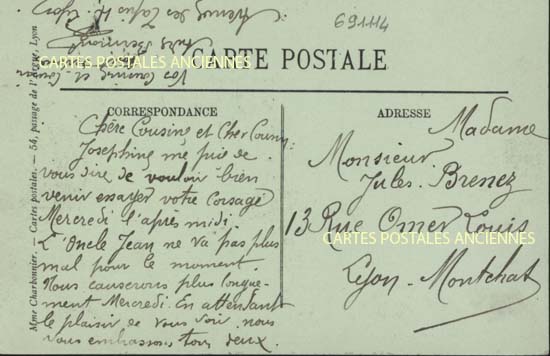 691114
CARTE POSTALE
CARTES POSTALES ANCIENNES
Vos Cousins et Cousines
CORRESPONDANCE
Chère Cousine et Cher Cousin
Josephine me prie de
vous dire de vouloir bien
venir essayer votre Corsage
Mercredi l'après midi.
L'Oncle Jean ne va pas plus
mal pour le moment.
Nous causerons plus longue-
ment Mercredi. En attendant
le plaisir de vous voir nous
vous embrassons tous deux.
ADRESSE
Madame
Monsieur
Jules Brenez
13 Rue Omer Louis
CARTES POSTALES ANCIENNES
Lyon - Montchat
Mme Charbonnier. — Cartes postales. — 54, passage de l'Argue, Lyon